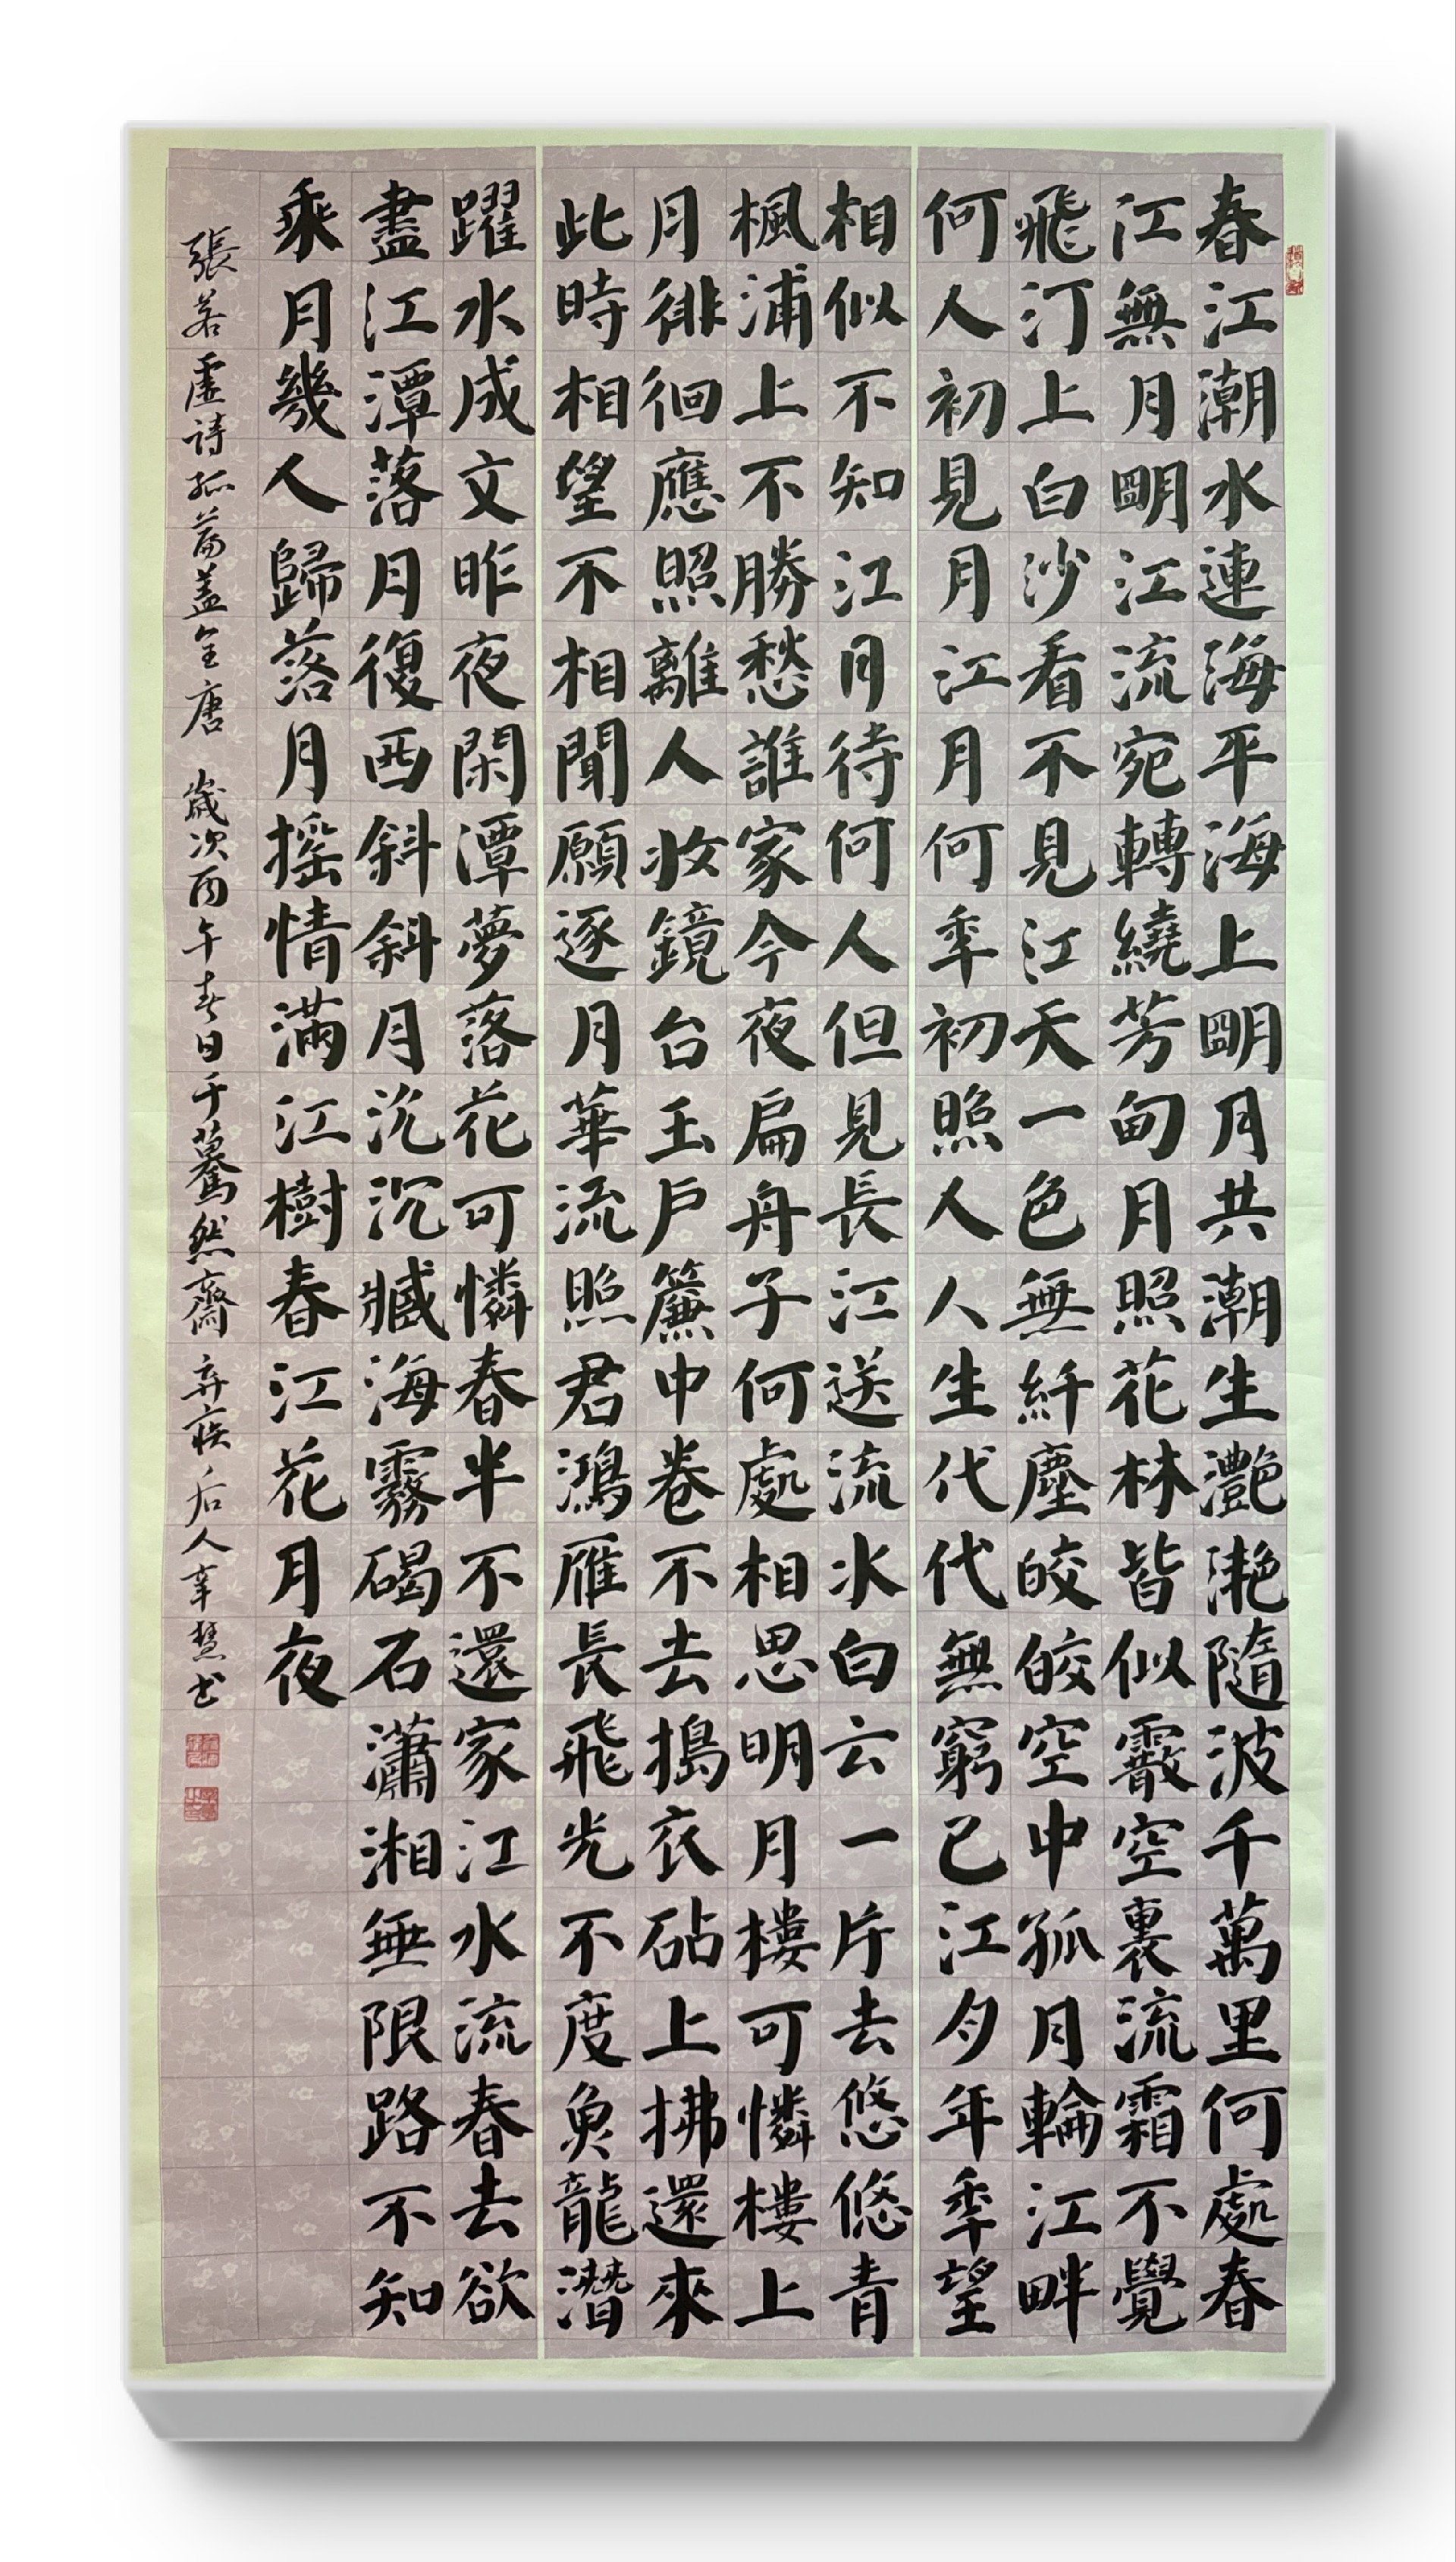 春江潮水連海平海上朙月共潮生灩灧隨波千萬里何處春
江無月朙江流宛轉繞芳甸月照花林皆似霰空裏流霜不覺
飛汀上白沙看不見江天一色無纤塵皎皎空中孤月輪江畔
何人初見月江月何秊初照人人生代代無窮已江月年秊望
相似不知江月待何人但見長江送流水白云一片去悠悠青
楓浦上不勝愁誰家今夜扁舟子何處相思明月樓可憐樓上
月徘徊應照離人妝鏡台玉戶簾中卷不去搗衣砧上拂還來
此時相望不相聞願逐月華流照君鴻雁長飛光不度魚龍潛
躍水成文昨夜閑潭夢落花可憐春半不還家江水流春去欲
盡江潭落月復西斜斜月沉沉藏海霧碣石瀟湘無限路不知
乘月幾人歸落月搖情滿江樹春江花月夜
張若虛詩孤篇蓋全唐 歲次丙午春日于驀然齋 弃疾后人辛慧书